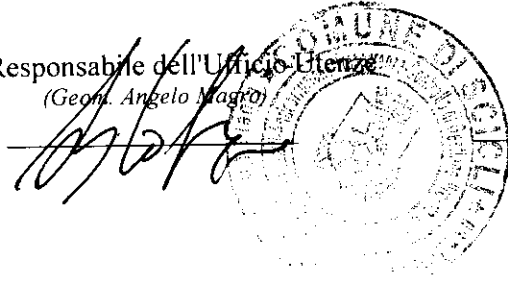 Responsabile dell'Ufficio Utenze
(Geom. Angelo Magro)
COMUNE DI SCICLI